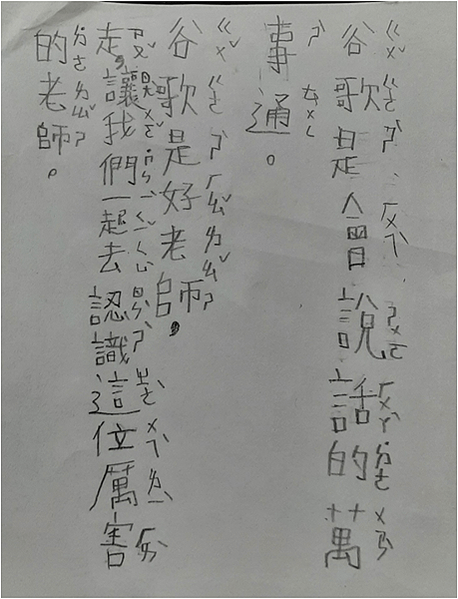 谷歌是會說話的萬
事通。
谷歌是好老師。
走,讓我們一起去認識這位厲害
的老師。